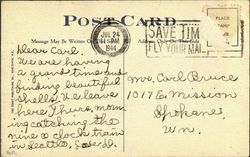 POST CARD
Message May Be Written
JUL 24
1944
SAVE TIME
YOUR MAIL
PLACE
STAMP
HERE
Dear Carl.
We are having
a grand time and
finding beautiful
shells. We leave
here Thurs. morn
ing catching the
nine o clock train
in Seattle,
Mr. Carl Bruce
1017 E. Mission
Spokane
Wn.